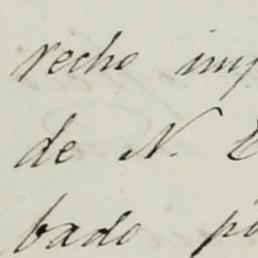 recho imp
de N.
bado po